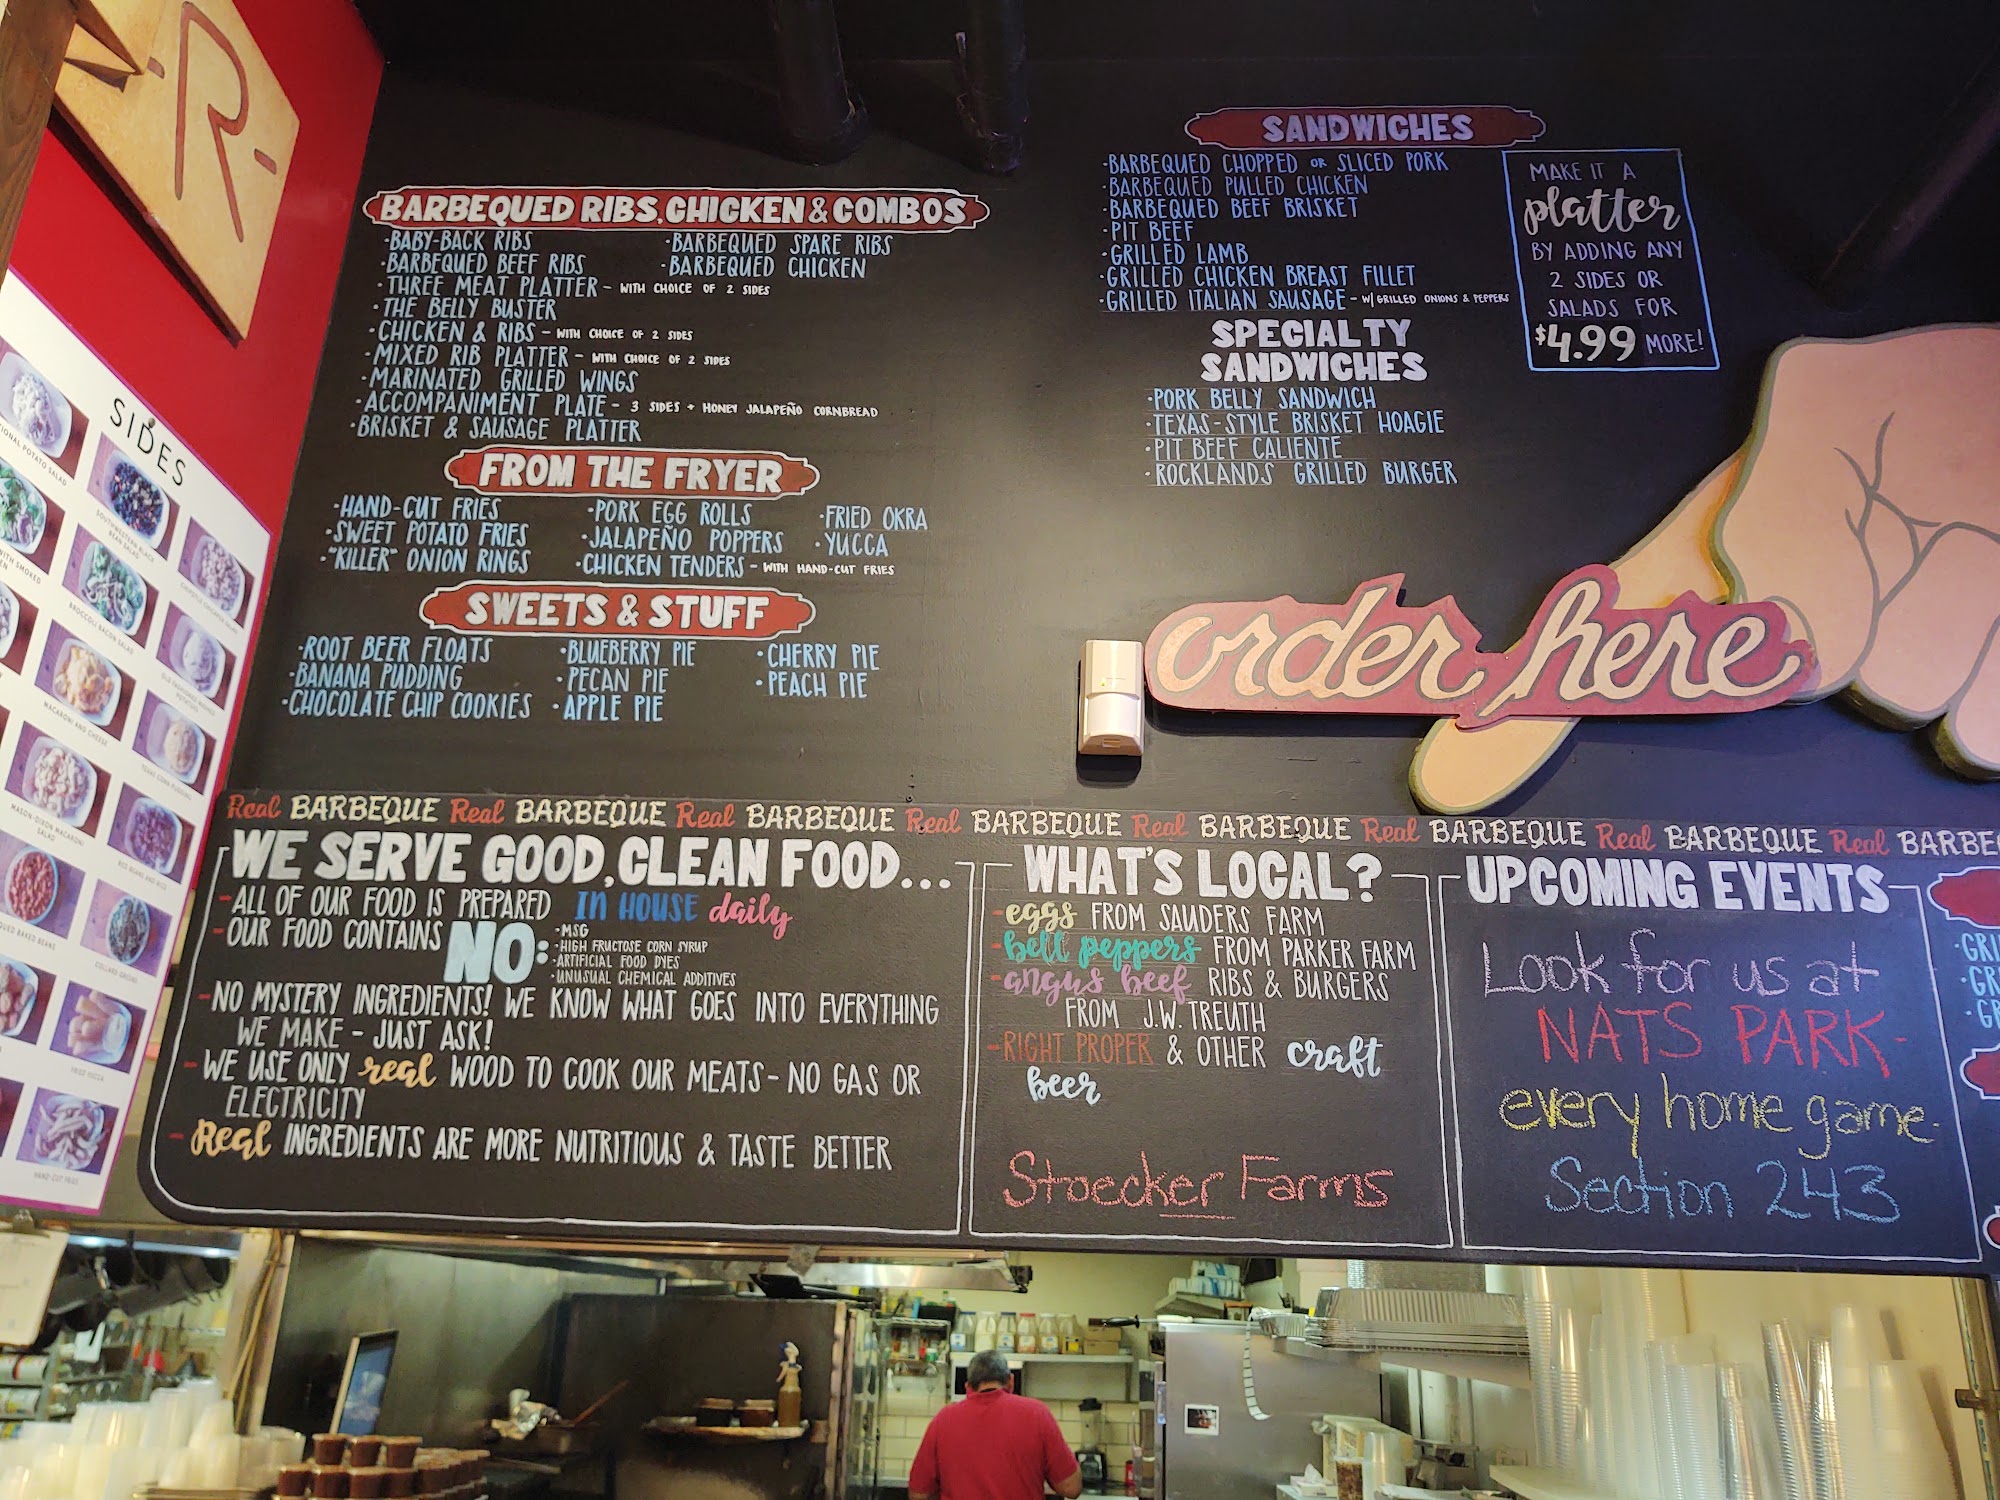 -R-
SIDES
SOUTHWESTERN BLACK
BEAN SALAD
BROCCOLI BACON SALAD
MACARONI AND CHEESE
MASON-DIXON MACARONI
SALAD
TEXAS CORN PUDDING
RED BEANS AND RICE
COLLARD GREENS
FRIED YUCCA
HAND-CUT FRIES
BARBEQUED RIBS, CHICKEN & COMBOS
·BABY-BACK RIBS
·BARBEQUED SPARE RIBS
·BARBEQUED BEEF RIBS
·BARBEQUED CHICKEN
·THREE MEAT PLATTER - WITH CHOICE OF 2 SIDES
·THE BELLY BUSTER
·CHICKEN & RIBS - WITH CHOICE OF 2 SIDES
·MIXED RIB PLATTER - WITH CHOICE OF 2 SIDES
·MARINATED GRILLED WINGS
·ACCOMPANIMENT PLATE - 3 SIDES + HONEY JALAPEÑO CORNBREAD
·BRISKET & SAUSAGE PLATTER
FROM THE FRYER
·HAND-CUT FRIES
·SWEET POTATO FRIES
·"KILLER" ONION RINGS
·PORK EGG ROLLS
·JALAPEÑO POPPERS
·CHICKEN TENDERS - WITH HAND-CUT FRIES
·FRIED OKRA
·YUCCA
SWEETS & STUFF
·ROOT BEER FLOATS
·BANANA PUDDING
·CHOCOLATE CHIP COOKIES
·BLUEBERRY PIE
·PECAN PIE
·APPLE PIE
·CHERRY PIE
·PEACH PIE
SANDWICHES
·BARBEQUED CHOPPED OR SLICED PORK
·BARBEQUED PULLED CHICKEN
·BARBEQUED BEEF BRISKET
·PIT BEEF
·GRILLED LAMB
·GRILLED CHICKEN BREAST FILLET
·GRILLED ITALIAN SAUSAGE - W/ GRILLED ONIONS & PEPPERS
SPECIALTY
SANDWICHES
·PORK BELLY SANDWICH
·TEXAS-STYLE BRISKET HOAGIE
·PIT BEEF CALIENTE
·ROCKLANDS GRILLED BURGER
MAKE IT A
platter
BY ADDING ANY
2 SIDES OR
SALADS FOR
$4.99 MORE!
order here
Real BARBEQUE Real BARBEQUE Real BARBEQUE Real BARBEQUE Real BARBEQUE Real BARBEQUE Real BARBEQUE Real BARBE
WE SERVE GOOD, CLEAN FOOD...
-ALL OF OUR FOOD IS PREPARED IN HOUSE daily
-OUR FOOD CONTAINS NO:
·MSG
·HIGH FRUCTOSE CORN SYRUP
·ARTIFICIAL FOOD DYES
·UNUSUAL CHEMICAL ADDITIVES
-NO MYSTERY INGREDIENTS! WE KNOW WHAT GOES INTO EVERYTHING
WE MAKE - JUST ASK!
-WE USE ONLY real WOOD TO COOK OUR MEATS - NO GAS OR
ELECTRICITY
-Real INGREDIENTS ARE MORE NUTRITIOUS & TASTE BETTER
WHAT'S LOCAL?
-eggs FROM SAUDERS FARM
-bell peppers FROM PARKER FARM
-angus beef RIBS & BURGERS
FROM J.W. TREUTH
-RIGHT PROPER & OTHER craft
beer
Stoecker Farms
UPCOMING EVENTS
Look for us at
NATS PARK-
every home game.
Section 243
·GRI
·GR
·GR